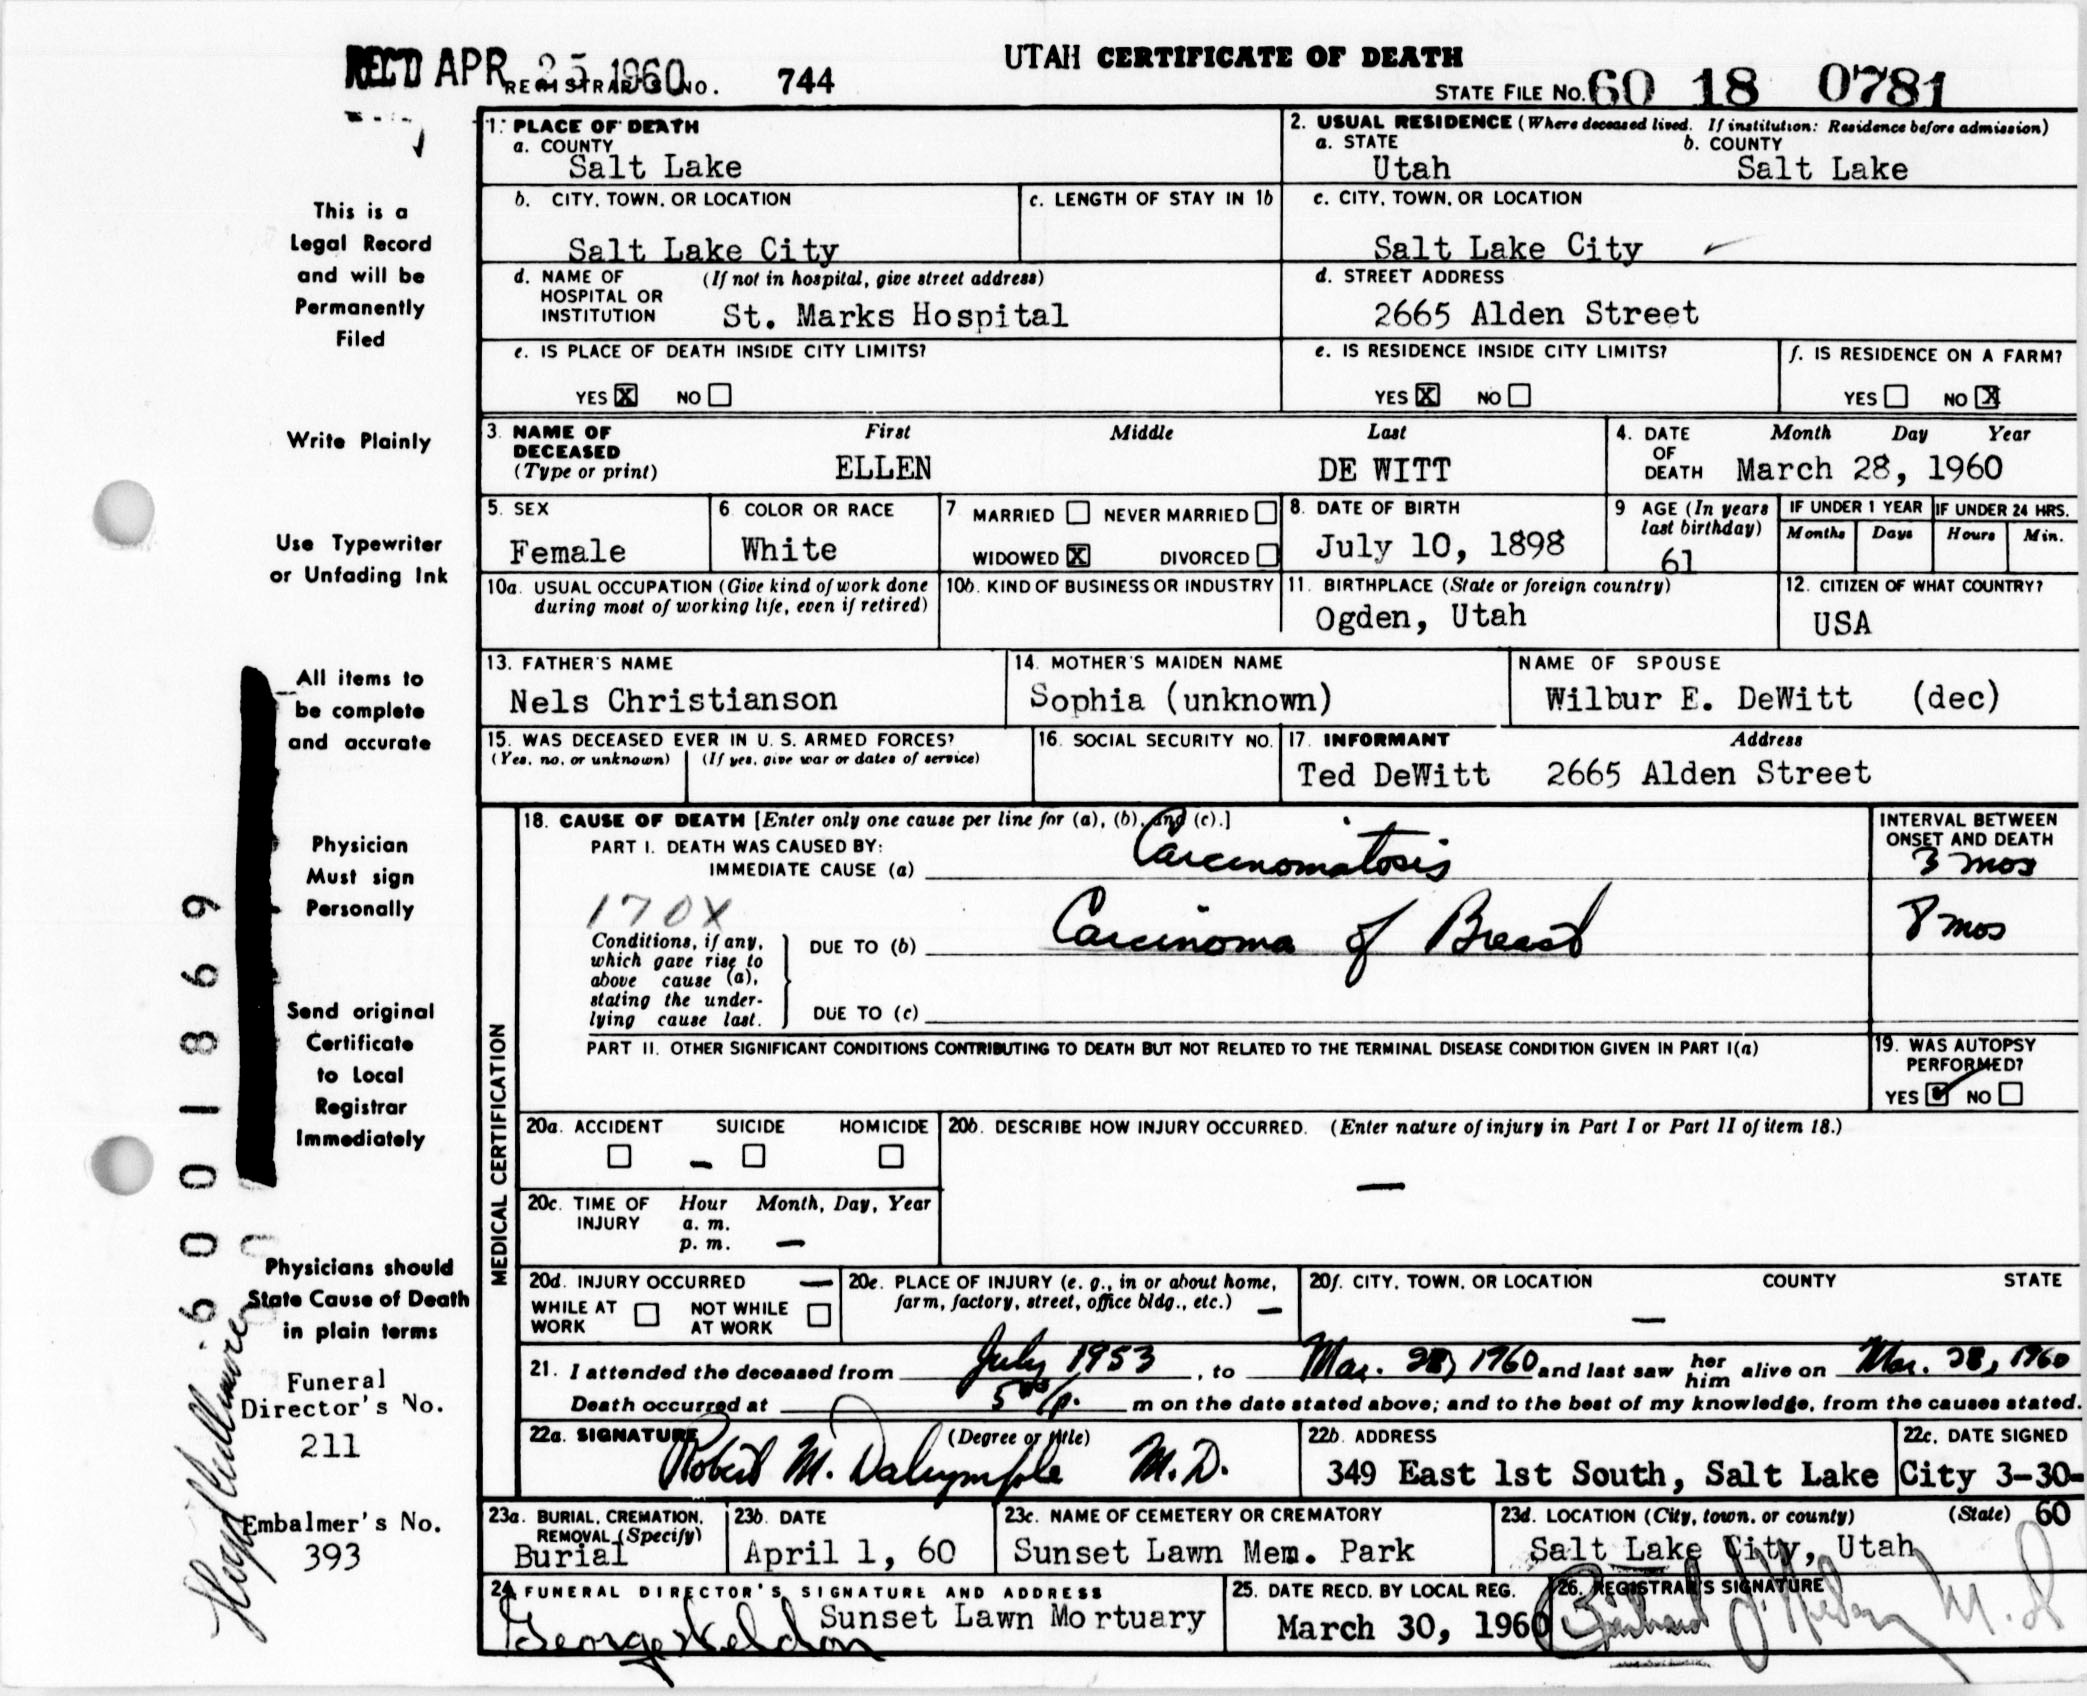 REC'D APR 25 1960
REGISTRAR'S NO. 744
UTAH CERTIFICATE OF DEATH
STATE FILE NO. 60 18 0781
This is a
Legal Record
and will be
Permanently
Filed
Write Plainly
Use Typewriter
or Unfading Ink
All items to
be complete
and accurate
Physician
Must sign
Personally
Send original
Certificate
to Local
Registrar
Immediately
Physicians should
State Cause of Death
in plain terms
Funeral
Director's No.
211
Embalmer's No.
393
6001869
1. PLACE OF DEATH
a. COUNTY
Salt Lake
2. USUAL RESIDENCE (Where deceased lived. If institution: Residence before admission)
a. STATE b. COUNTY
Utah Salt Lake
b. CITY, TOWN, OR LOCATION
Salt Lake City
c. LENGTH OF STAY IN 1b
c. CITY, TOWN, OR LOCATION
Salt Lake City
d. NAME OF HOSPITAL OR INSTITUTION (If not in hospital, give street address)
St. Marks Hospital
d. STREET ADDRESS
2665 Alden Street
e. IS PLACE OF DEATH INSIDE CITY LIMITS?
YES X NO
e. IS RESIDENCE INSIDE CITY LIMITS?
YES X NO
f. IS RESIDENCE ON A FARM?
YES NO X
3. NAME OF DECEASED (Type or print) First Middle Last
ELLEN DE WITT
4. DATE OF DEATH Month Day Year
March 28, 1960
5. SEX
Female
6 COLOR OR RACE
White
7 MARRIED NEVER MARRIED
WIDOWED X DIVORCED
8. DATE OF BIRTH
July 10, 1898
9 AGE (In years last birthday)
61
IF UNDER 1 YEAR
Months Days
IF UNDER 24 HRS.
Hours Min.
10a. USUAL OCCUPATION (Give kind of work done during most of working life, even if retired)
10b. KIND OF BUSINESS OR INDUSTRY
11. BIRTHPLACE (State or foreign country)
Ogden, Utah
12. CITIZEN OF WHAT COUNTRY?
USA
13. FATHER'S NAME
Nels Christianson
14. MOTHER'S MAIDEN NAME
Sophia (unknown)
NAME OF SPOUSE
Wilbur E. DeWitt (dec)
15. WAS DECEASED EVER IN U. S. ARMED FORCES?
(Yes, no, or unknown) (If yes, give war or dates of service)
16. SOCIAL SECURITY NO.
17. INFORMANT Address
Ted DeWitt 2665 Alden Street
MEDICAL CERTIFICATION
18. CAUSE OF DEATH [Enter only one cause per line for (a), (b), and (c).]
PART I. DEATH WAS CAUSED BY:
IMMEDIATE CAUSE (a) Carcinomatosis
INTERVAL BETWEEN ONSET AND DEATH
3 mos
170X
Conditions, if any, which gave rise to above cause (a), stating the underlying cause last.
DUE TO (b) Carcinoma of Breast
8 mos
DUE TO (c)
PART II. OTHER SIGNIFICANT CONDITIONS CONTRIBUTING TO DEATH BUT NOT RELATED TO THE TERMINAL DISEASE CONDITION GIVEN IN PART I(a)
19. WAS AUTOPSY PERFORMED?
YES NO
20a. ACCIDENT SUICIDE HOMICIDE
20b. DESCRIBE HOW INJURY OCCURRED. (Enter nature of injury in Part I or Part II of item 18.)
20c. TIME OF INJURY Hour Month, Day, Year
a. m.
p. m.
20d. INJURY OCCURRED
WHILE AT WORK NOT WHILE AT WORK
20e. PLACE OF INJURY (e. g., in or about home, farm, factory, street, office bldg., etc.)
20f. CITY, TOWN, OR LOCATION COUNTY STATE
21. I attended the deceased from July 1953, to Mar. 28, 1960 and last saw her him alive on Mar. 28, 1960
Death occurred at 5 p. m on the date stated above; and to the best of my knowledge, from the causes stated.
22a. SIGNATURE (Degree or title)
Robert M. Dalrymple M.D.
22b. ADDRESS
349 East 1st South, Salt Lake City
22c. DATE SIGNED
3-30-60
23a. BURIAL, CREMATION, REMOVAL (Specify)
Burial
23b. DATE
April 1, 60
23c. NAME OF CEMETERY OR CREMATORY
Sunset Lawn Mem. Park
23d. LOCATION (City, town, or county) (State)
Salt Lake City, Utah
24 FUNERAL DIRECTOR'S SIGNATURE AND ADDRESS
Sunset Lawn Mortuary
25. DATE RECD. BY LOCAL REG.
March 30, 1960
26. REGISTRAR'S SIGNATURE